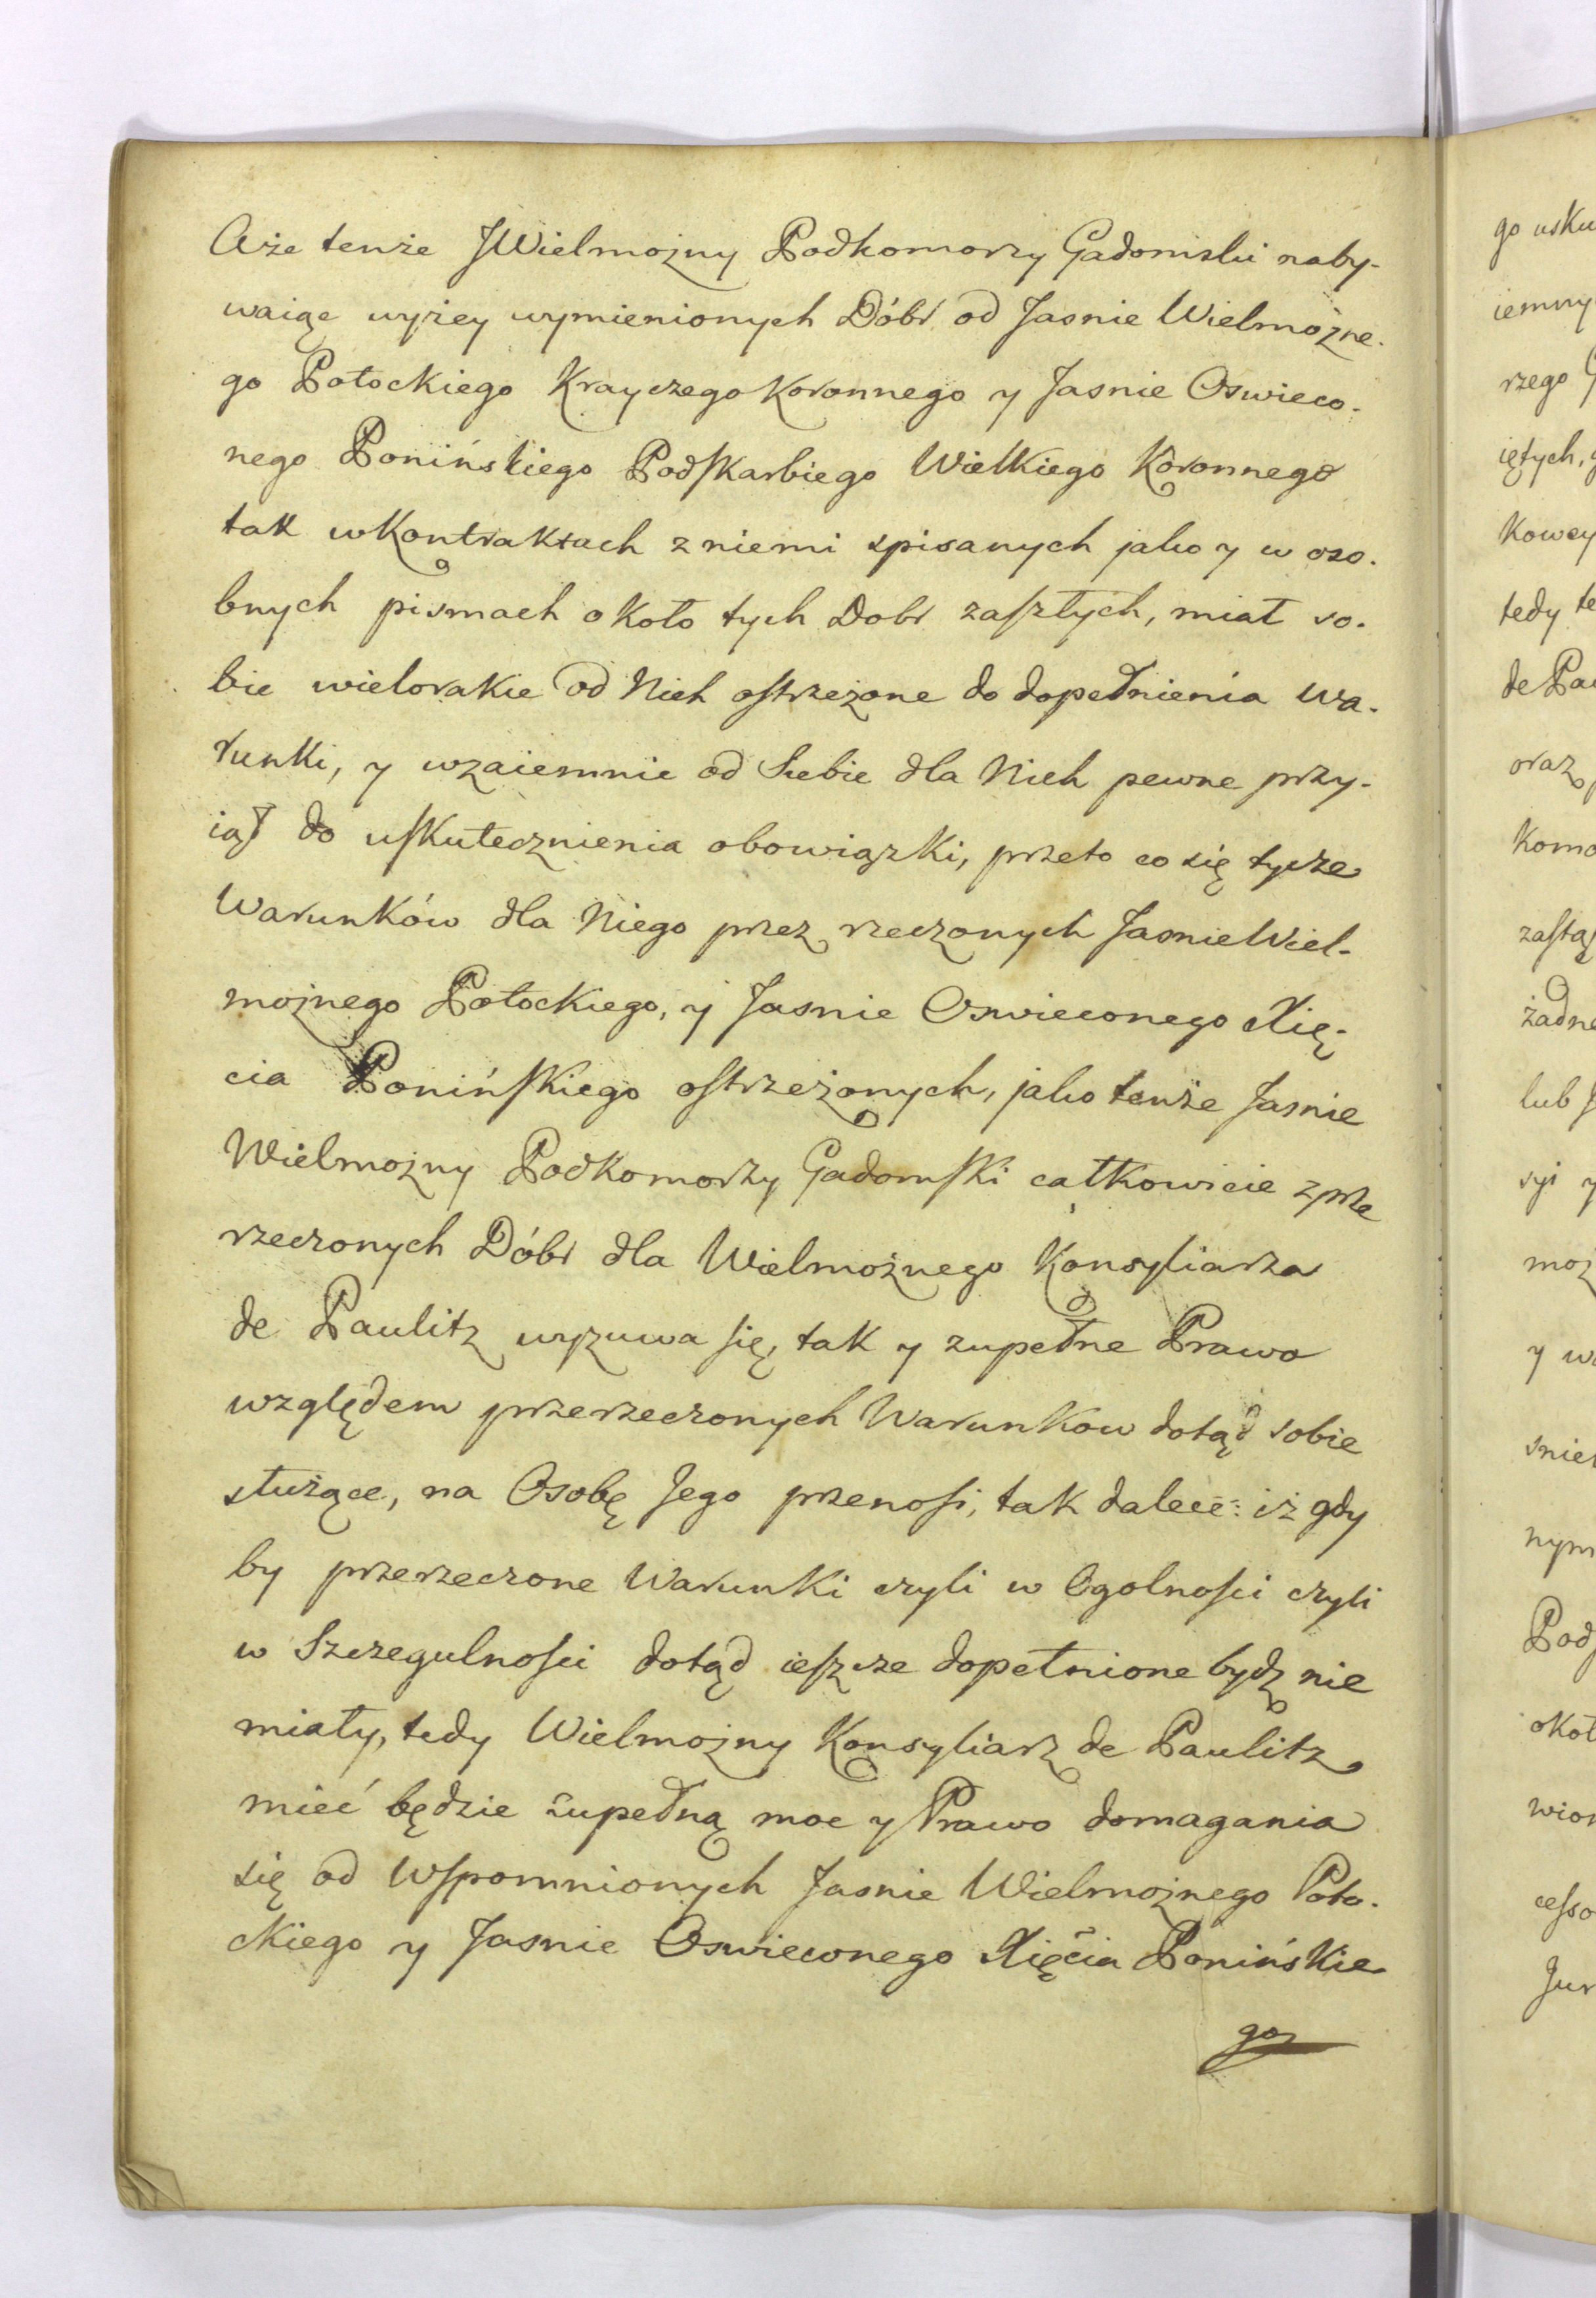 Aże tenże JWielmożny Podkomorzy Gadomski naby-
waiąc wyżey wymienionych Dóbr od Jasnie Wielmożne-
go Potockiego Krayczego Koronnego y Jasnie Oswieco-
nego Ponińskiego Podskarbiego Wielkiego Koronnego
tak w Kontraktach z niemi spisanych jako y w oso-
bnych pismach około tych Dobr zaszłych, miał so-
bie wielorakie od Nich ostrzeżone do dopełnienia Wa-
runki, y wzaiemnie od Siebie dla Nich pewne przy-
iął do uskutecznienia obowiązki, przeto co się tycze
Warunków dla Niego przez rzeczonych Jasnie Wiel-
możnego Potockiego, y Jasnie Oswieconego Xię-
cia Ponińskiego ostrzeżonych, jako tenże Jasnie
Wielmożny Podkomorzy Gadomski całkowicie z prze
rzeczonych Dóbr dla Wielmożnego Konsyliarza
de Paulitz wyzuwa się, tak y zupełne Prawo
względem przerzeczonych Warunkow dotąd sobie
służące, na Osobę Jego przenosi, tak dalece: iż gdy
by przerzeczone Warunki czyli w Ogolnosci czyli
w Szczegulnosci dotąd ieszcze dopełnione bydź nie
miały, tedy Wielmożny Konsyliarz de Paulitz
mieć będzie zupełną moc y Prawo domagania
się od Wspomnionych Jasnie Wielmożnego Poto-
ckiego y Jasnie Oswieconego Xięcia Ponińskie
go
go usku
iemny
rzego
iętych,
kowey
tedy te
de Pau
oraz
Komo
zastą
żadne
lub J
syi y
moż
y w
snie
nym
Pod
okoł
wion
cesso
Jur